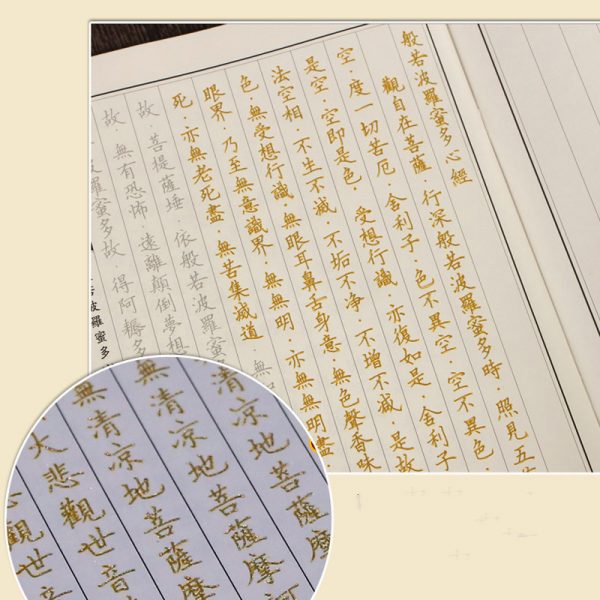 般若波羅蜜多心經
觀自在菩薩 行深般若波羅蜜多時·照見五
空·度一切苦厄·舍利子·色不異空·空不異色·
是空·空即是色· 受想行識·亦復如是·舍利子
法空相·不生不滅·不垢不净·不增不减·是故
色·無受想行識·無眼耳鼻舌身意·無色聲香味
眼界·乃至無意識界·無無明·亦無無明盡·
死·亦無老死盡·無苦集滅道·無
故·菩提薩埵·依般若波羅蜜
故·無有恐怖·遠離顛倒夢想
波羅蜜多故 得阿耨多
波羅蜜多
清凉地菩薩摩
無清凉地菩薩摩
無清凉地菩薩摩
大悲觀世音
觀世音